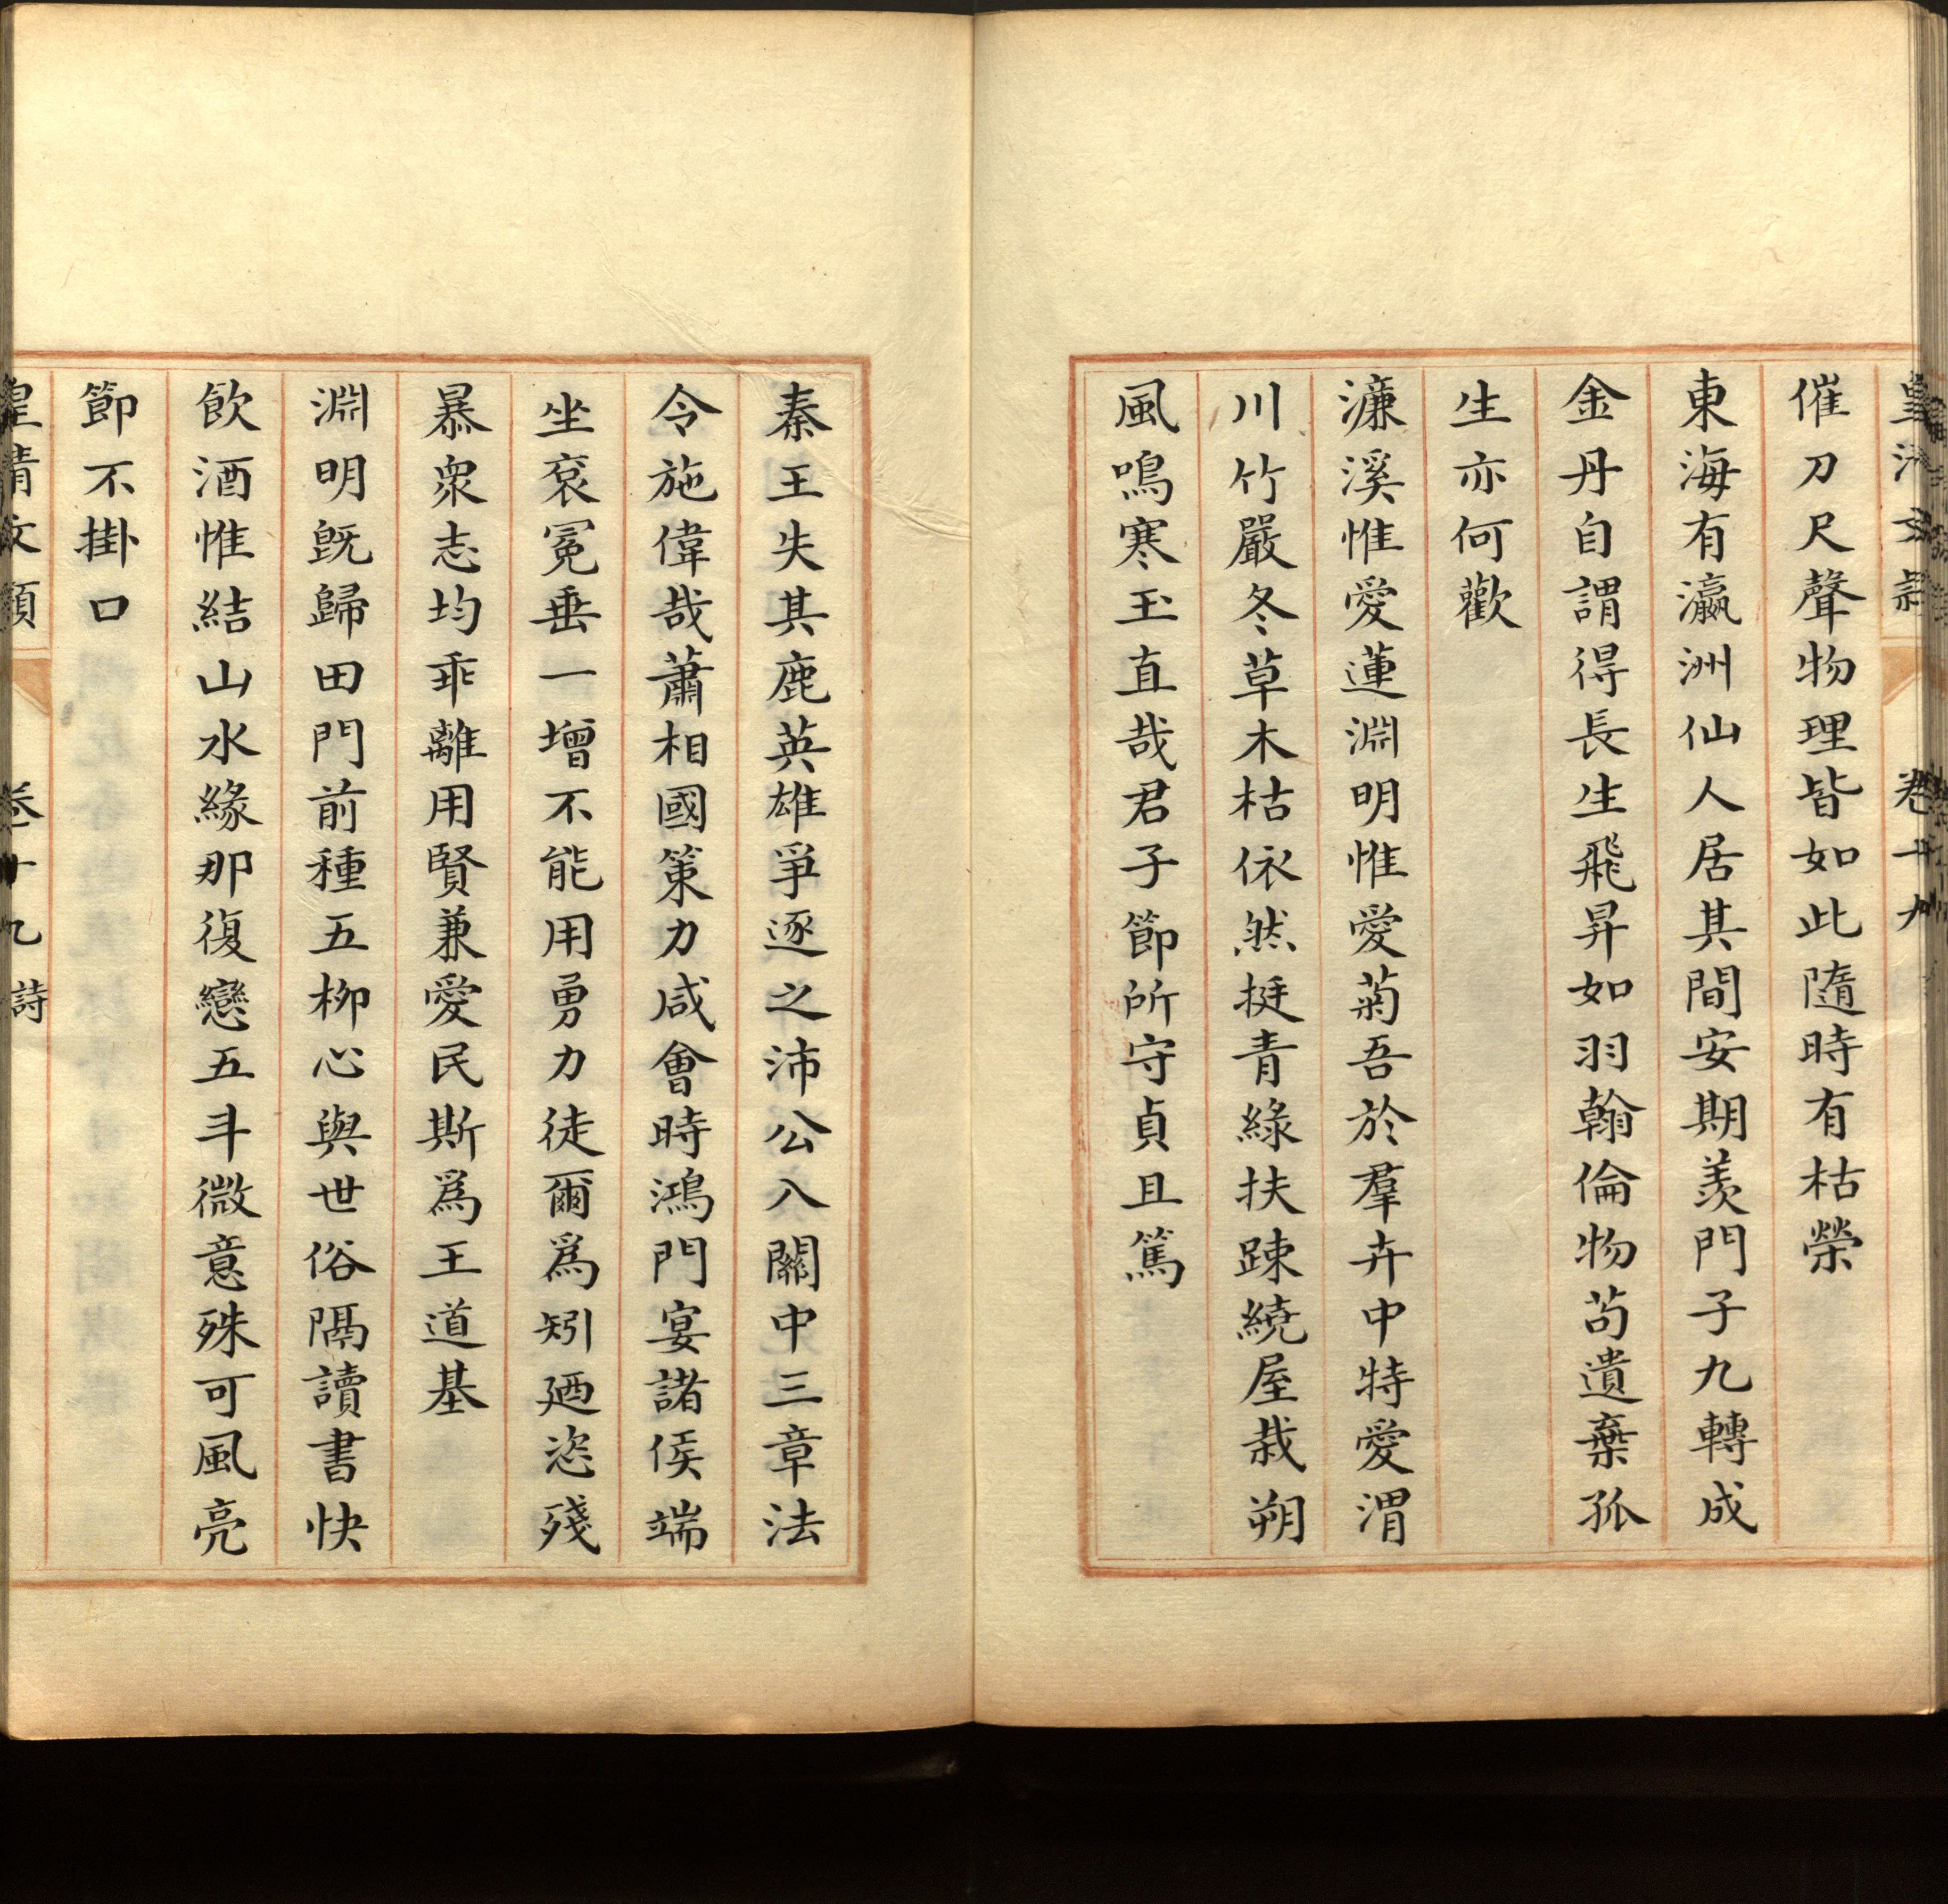 皇清文穎 卷十九
催刀尺聲物理皆如此隨時有枯榮
東海有瀛洲仙人居其間安期羨門子九轉成
金丹自謂得長生飛昇如羽翰倫物苟遺棄孤
生亦何歡
濂溪惟愛蓮淵明惟愛菊吾於羣卉中特愛渭
川竹嚴冬草木枯依然挺青綠扶踈繞屋栽朔
風鳴寒玉直哉君子節所守貞且篤
秦王失其鹿英雄爭逐之沛公入關中三章法
令施偉哉蕭相國策力咸會時鴻門宴諸侯端
坐袞冕垂一增不能用勇力徒爾為矧廼恣殘
暴衆志均乖離用賢兼愛民斯為王道基
淵明既歸田門前種五柳心與世俗隔讀書快
飲酒惟結山水緣那復戀五斗微意殊可風亮
節不掛口
皇清文穎 卷十九 詩